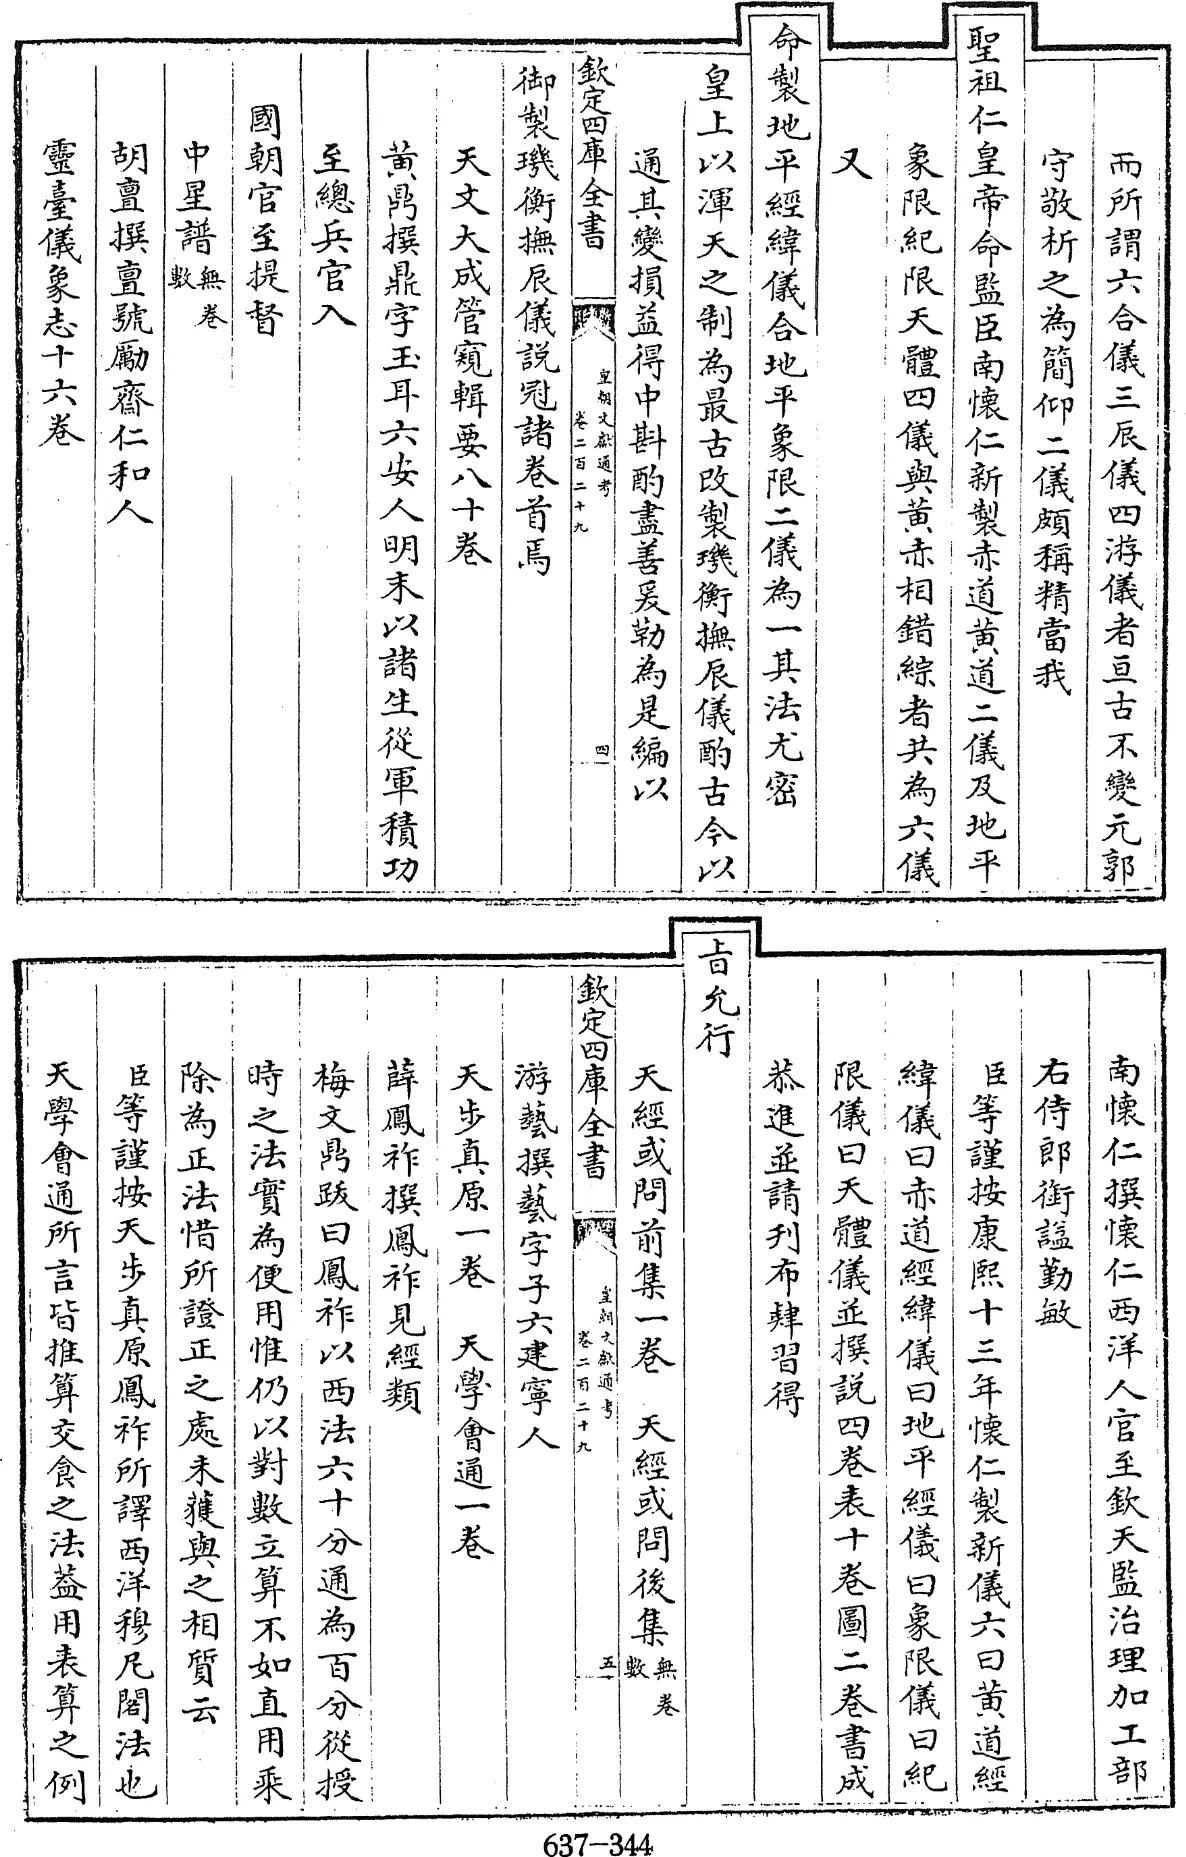 而所謂六合儀三辰儀四游儀者亘古不變元郭
守敬析之為簡仰二儀頗稱精當我
聖祖仁皇帝命監臣南懷仁新製赤道黃道二儀及地平
象限紀限天體四儀與黃赤相錯綜者共為六儀
又
命製地平經緯儀合地平象限二儀為一其法尤密
皇上以渾天之制為最古改製璣衡撫辰儀酌古今以
通其變損益得中斟酌盡善爰勒為是編以
欽定四庫全書
皇朝文獻通考
卷二百二十九
四
御製璣衡撫辰儀説冠諸卷首焉
天文大成管窺輯要八十卷
黃鼎撰鼎字玉耳六安人明末以諸生從軍積功
至總兵官入
國朝官至提督
中星譜無卷數
胡亶撰亶號勵齋仁和人
靈臺儀象志十六卷
南懷仁撰懷仁西洋人官至欽天監治理加工部
右侍郎銜諡勤敏
臣等謹按康熙十三年懷仁製新儀六曰黃道經
緯儀曰赤道經緯儀曰地平經儀曰象限儀曰紀
限儀曰天體儀並撰説四卷表十卷圖二卷書成
恭進並請刋布肄習得
㫖允行
天經或問前集一卷　天經或問後集無卷數
欽定四庫全書
皇朝文獻通考
卷二百二十九
五
游藝撰藝字子六建寧人
天步真原一卷　天學會通一卷
薛鳳祚撰鳳祚見經類
梅文鼎跋曰鳳祚以西法六十分通為百分從授
時之法實為便用惟仍以對數立算不如直用乘
除為正法惜所證正之處未獲與之相質云
臣等謹按天步真原鳳祚所譯西洋穆尼閣法也
天學會通所言皆推算交食之法葢用表算之例
637-344